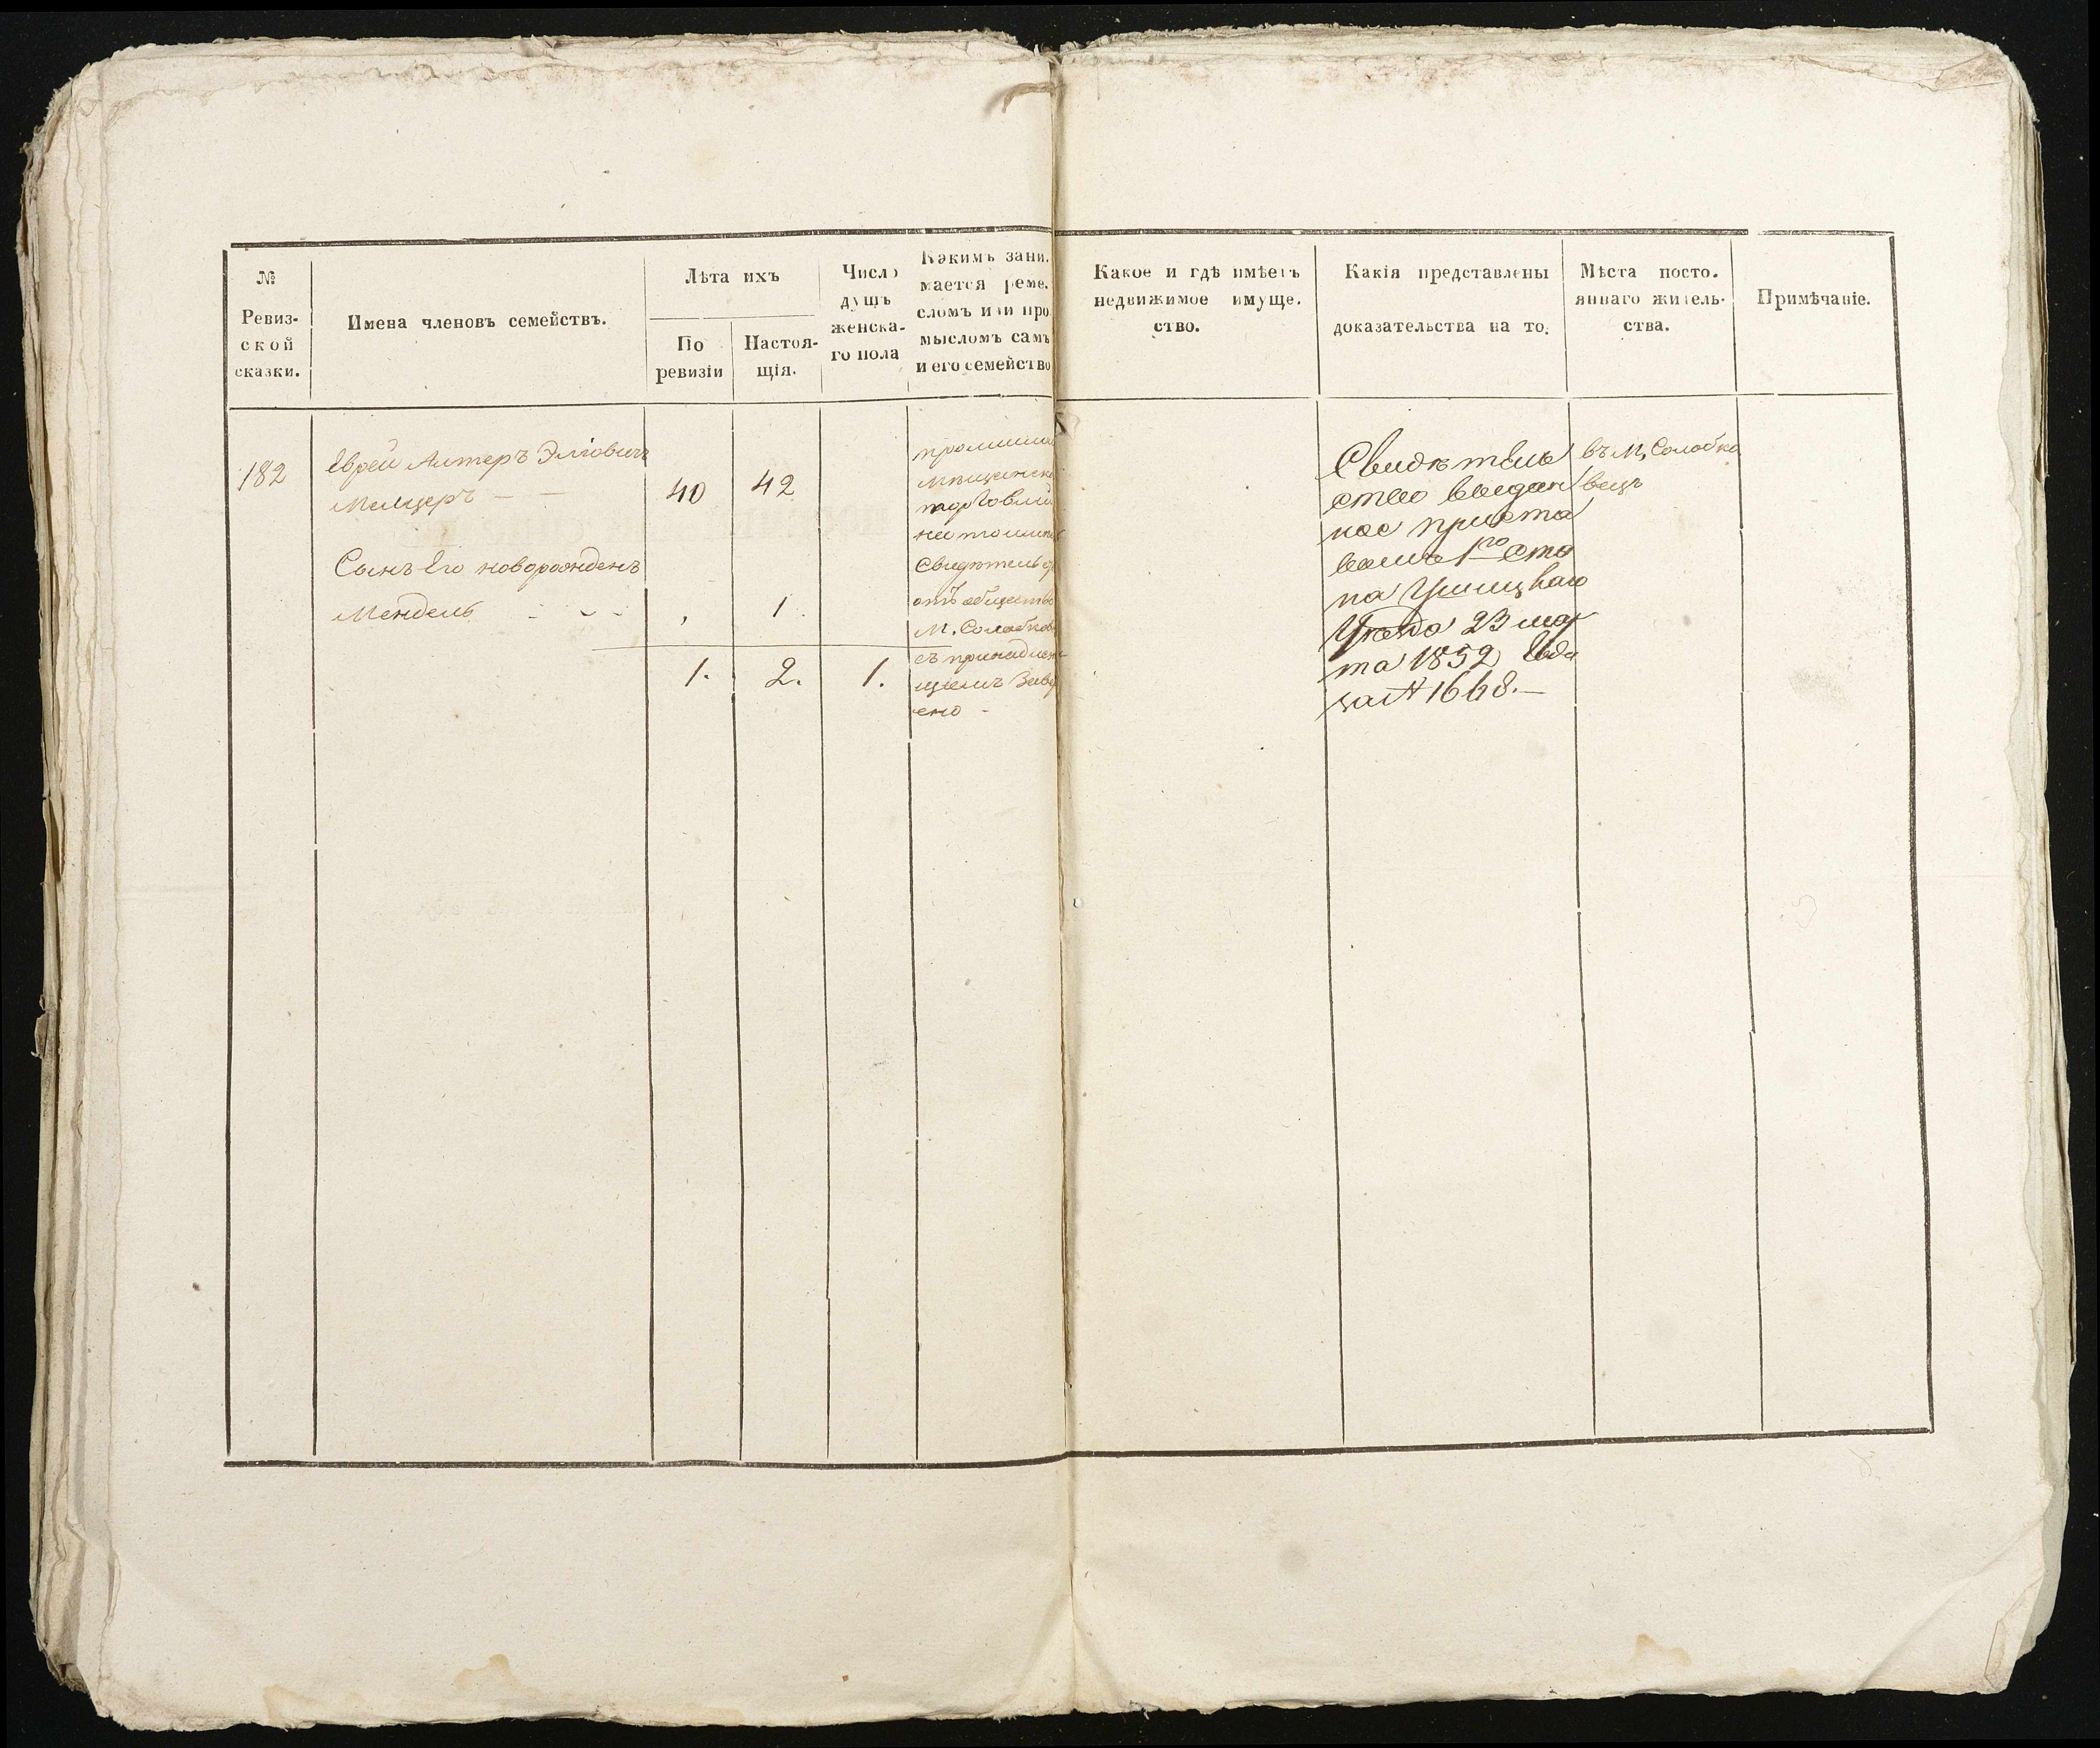 №
Ревиз-
ской
сказки.
Имена членовъ семействъ.
Лѣта ихъ
По
ревизіи
Настоя-
щія.
Число
душъ
женска-
го пола
Какимъ зани.
мается реме.
сломъ или про
мысломъ самъ
и его семейство
Какое и гдѣ имѣетъ
недвижимое имуще.
ство.
Какія представлены
доказательства на то.
Мѣста посто.
яннаго житель-
ства.
Примѣчаніе.
182
Еврей Алтеръ Эліовичъ
Мелцеръ — —
40
42
Сынъ Его новорожденъ
Мендель
1
1.
2.
1.
торговлею
Свидетельс
отъ общества
М. Солобков
съ принадлеж
щимъ
ено -
Свидѣтель
ство выдан
ное приста
вомъ 1го ста
на Ушицкаго
Уѣзда 23 мар
та 1852 года
за № 1668.—
въ М. Солобко
вецъ